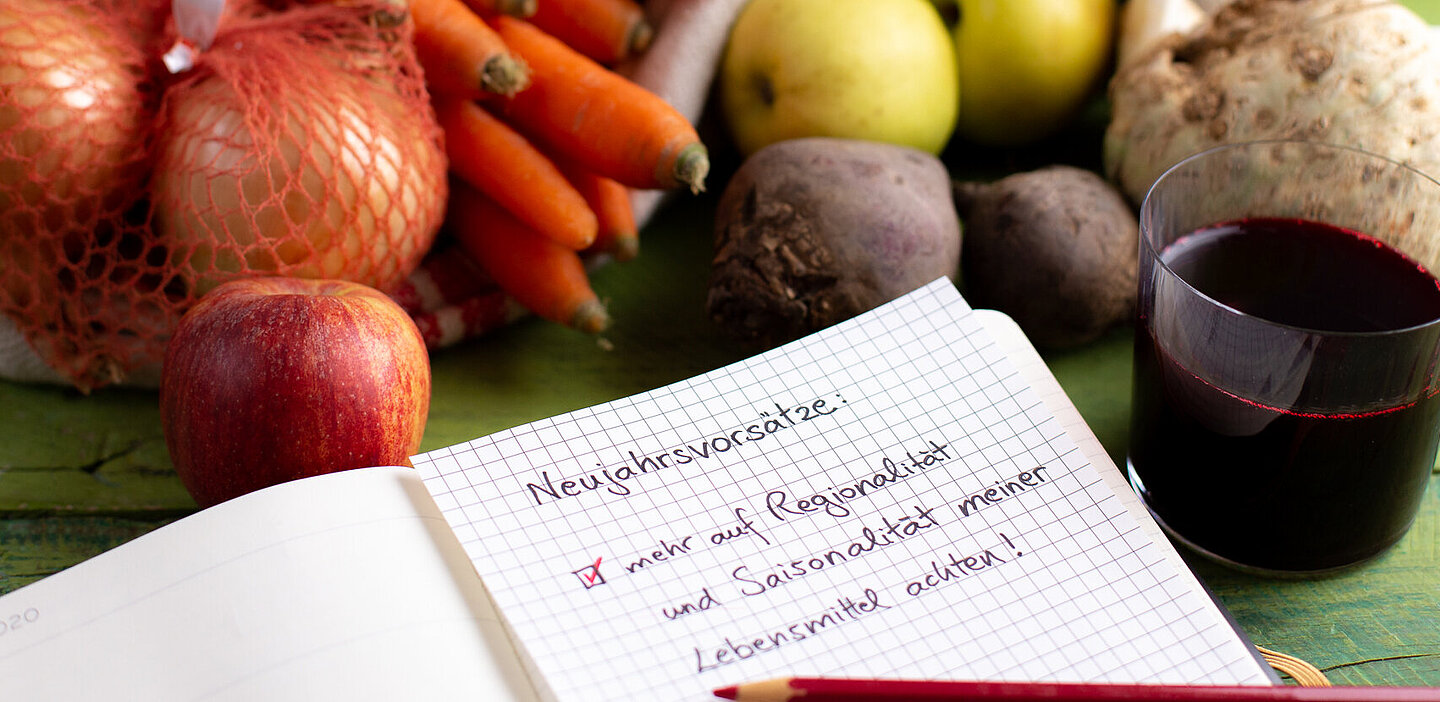 Neujahrsvorsätze:
mehr auf Regionalität
und Saisonalität meiner
Lebensmittel achten!
020